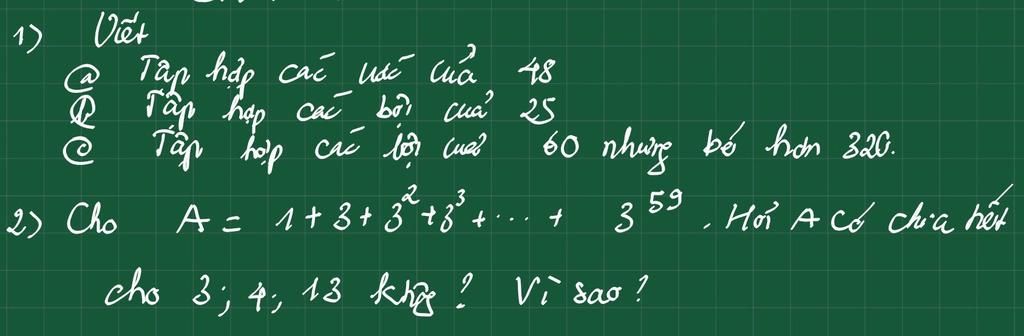 1) Viết
a Tập hợp các ước của 48
b Tập hợp các bội của 25
c Tập hợp các bội của 60 nhưng bé hơn 320.
2) Cho A = 1 + 3 + 3² + 3³ + ... + 3⁵⁹. Hỏi A có chia hết
cho 3; 4; 13 không? Vì sao?